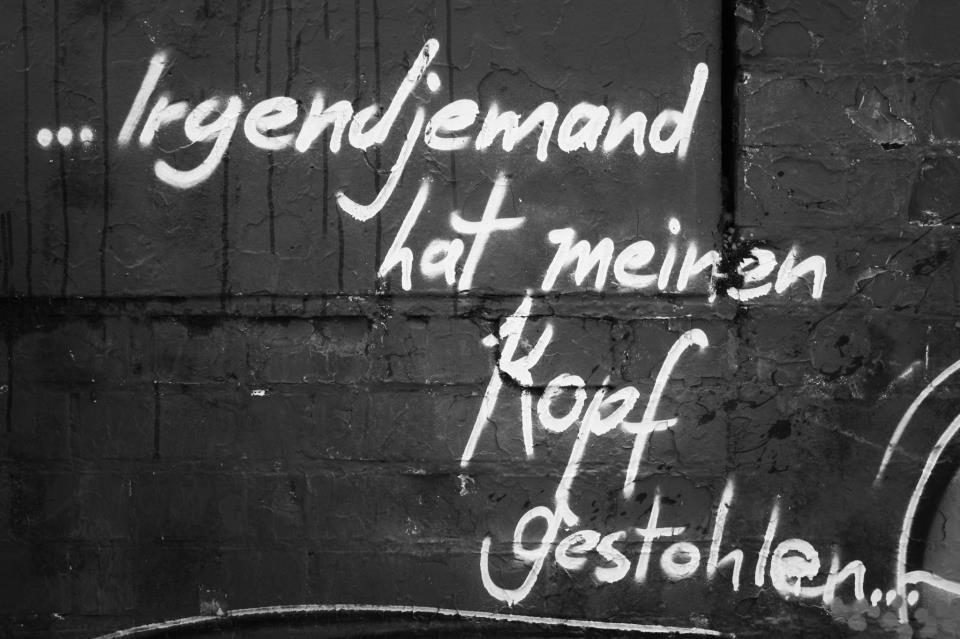 ...Irgendjemand
hat meinen
Kopf
gestohlen...